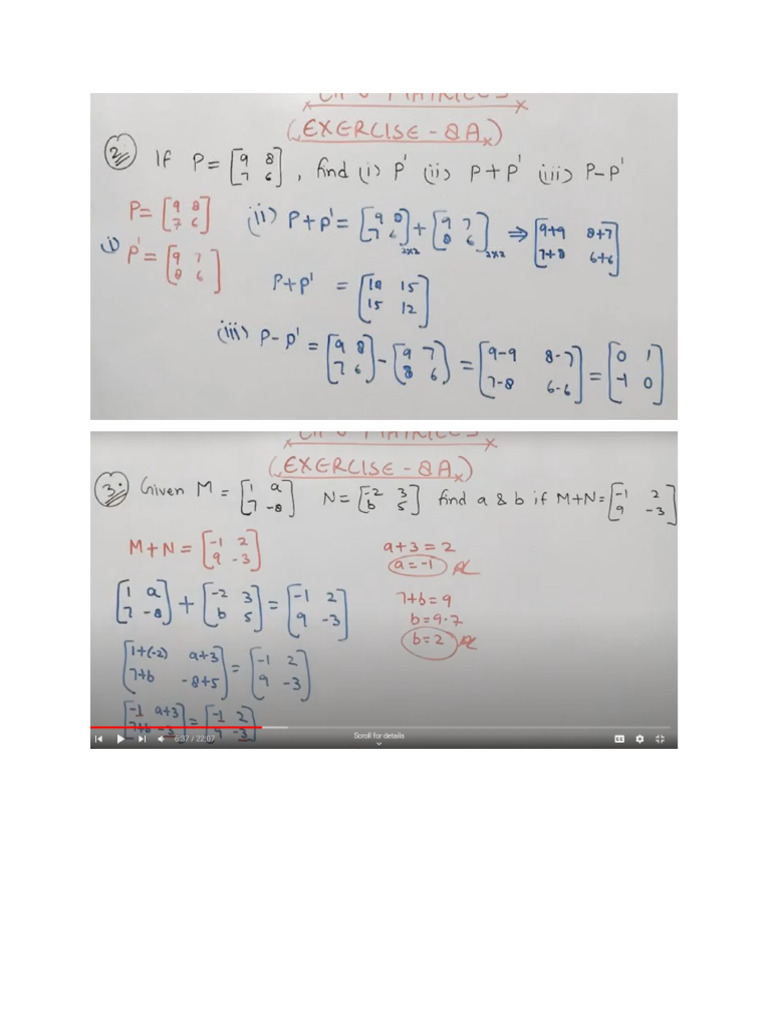 CH-8 MATRICES
(EXERCISE - 8A)
2. If P = [9 8; 7 6], find (i) P' (ii) P+P' (iii) P-P'
P = [9 8; 7 6]
(i) P' = [9 7; 8 6]
(ii) P+P' = [9 8; 7 6]2x2 + [9 7; 8 6]2x2 ⇒ [9+9 8+7; 7+8 6+6]
P+P' = [18 15; 15 12]
(iii) P-P' = [9 8; 7 6] - [9 7; 8 6] = [9-9 8-7; 7-8 6-6] = [0 1; -1 0]
CH-8 MATRICES
(EXERCISE - 8A)
3. Given M = [1 a; 7 -8] N = [-2 3; b 5] find a & b if M+N = [-1 2; 9 -3]
M+N = [-1 2; 9 -3]
[1 a; 7 -8] + [-2 3; b 5] = [-1 2; 9 -3]
[1+(-2) a+3; 7+b -8+5] = [-1 2; 9 -3]
[-1 a+3; 7+b -3] = [-1 2; 9 -3]
a+3=2
a=-1
7+b=9
b=9-7
b=2
6:37 / 22:07
Scroll for details
CC